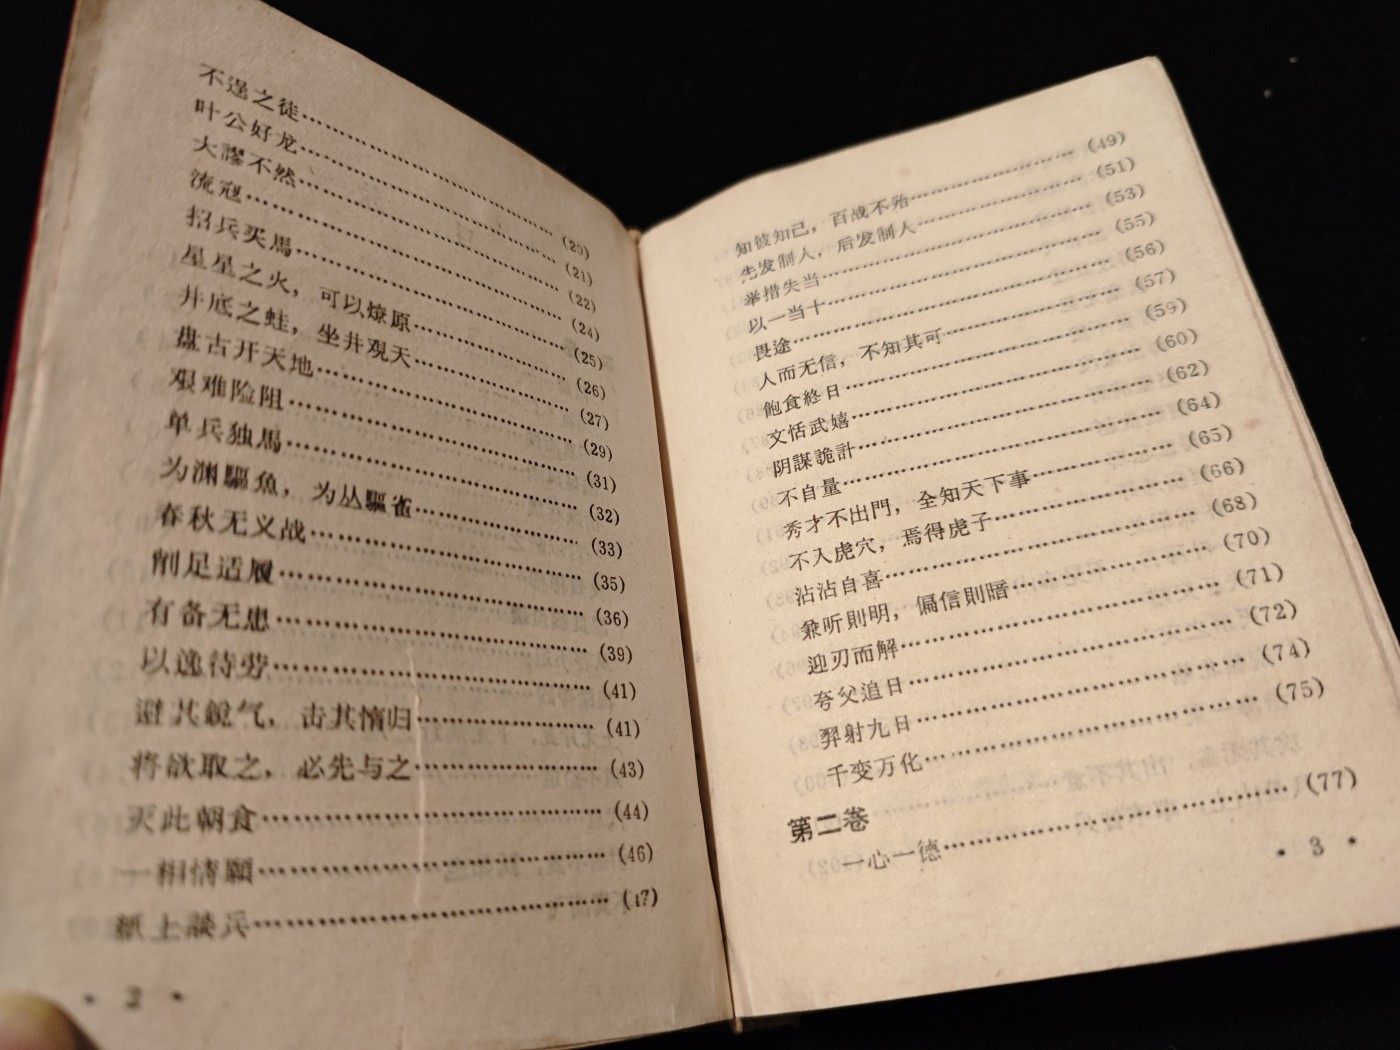 不逞之徒……………………(20)
叶公好龙……………………(21)
大謬不然……………………(22)
流寇……………………(24)
招兵买馬……………………(25)
星星之火，可以燎原……………………(26)
井底之蛙，坐井观天……………………(27)
盘古开天地……………………(29)
艰难险阻……………………(31)
单兵独馬……………………(32)
为渊驅魚，为丛驅雀……………………(33)
春秋无义战……………………(35)
削足适履……………………(36)
有备无患……………………(39)
以逸待劳……………………(41)
避其銳气，击其惰归……………………(41)
将欲取之，必先与之……………………(43)
灭此朝食……………………(44)
一相情願……………………(46)
紙上談兵……………………(47)
• 2 •
知彼知己，百战不殆……………………(49)
先发制人，后发制人……………………(51)
举措失当……………………(53)
以一当十……………………(55)
畏途……………………(56)
人而无信，不知其可……………………(57)
飽食終日……………………(59)
文恬武嬉……………………(60)
阴謀詭計……………………(62)
不自量……………………(64)
秀才不出門，全知天下事……………………(65)
不入虎穴，焉得虎子……………………(66)
沾沾自喜……………………(68)
兼听則明，偏信則暗……………………(70)
迎刃而解……………………(71)
夸父追日……………………(72)
羿射九日……………………(74)
千变万化……………………(75)
第二卷
一心一德……………………(77)
• 3 •